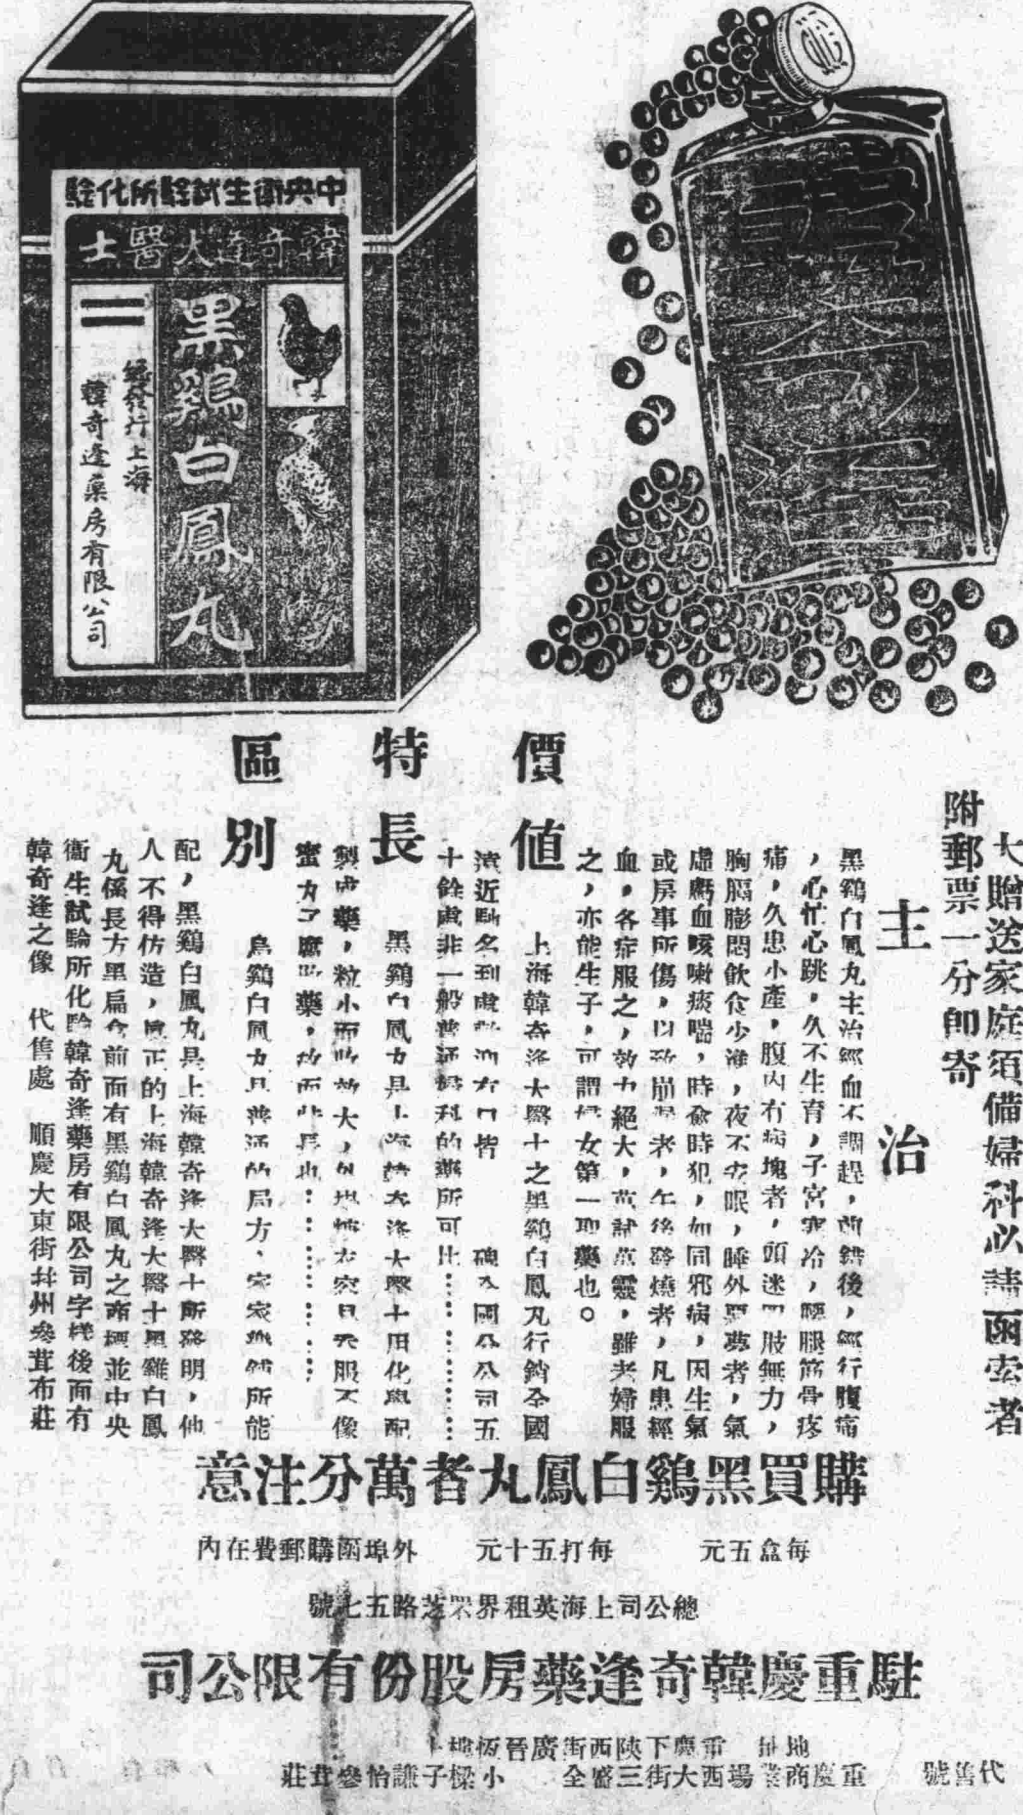 中央衛生試驗所化驗
韓奇逢大醫士
黑鷄白鳳丸
總發行上海
韓奇逢藥房有限公司
韓奇逢
大贈送家庭須備婦科必請函索者
附郵票一分即寄
主治
黑鷄白鳳丸主治經血不調趕前錯後，經行腹痛
，心忙心跳，久不生育，子宮寒冷，腰腿筋骨疼
痛，久患小產，腹內有病塊者，頭迷四肢無力，
胸膈膨悶飲食少進，夜不安眠，睡外惡夢者，氣
虛虧血咳嗽痰喘，時愈時犯，如同邪病，因生氣
或房事所傷，以致崩漏者，午後發燒者，凡患經
血，各症服之，效力絕大，萬試萬靈，雖老婦服
之，亦能生子，可謂婦女第一聖藥也。
價值
上海韓奇逢大醫士之黑鷄白鳳丸行銷全國
遠近馳名到處歡迎有口皆碑
十餘處非一般普通婦科的藥所可比
特長
黑鷄白鳳丸是上海韓奇逢大醫士用化學配
製成藥，粒小而收效大，
區別
烏鷄白鳳丸是普通的局方，家家藥鋪所能
配，黑鷄白鳳丸是上海韓奇逢大醫士所發明，他
人不得仿造，真正的上海韓奇逢大醫士黑雞白鳳
丸係長方黑扁盒前面有黑鷄白鳳丸之商標並中央
衛生試驗所化驗韓奇逢藥房有限公司字樣後面有
韓奇逢之像　代售處　順慶大東街井州參茸布莊
購買黑鷄白鳳丸者萬分注意
每盒五元　每打五十元　外埠函購郵費在內
總公司上海英租界眾芝路五七號
駐重慶韓奇逢藥房股份有限公司
地址　重慶下陝西街廣晉恆樓上
代售號　重慶商業場西大街三盛全　小樑子謙怡參茸莊